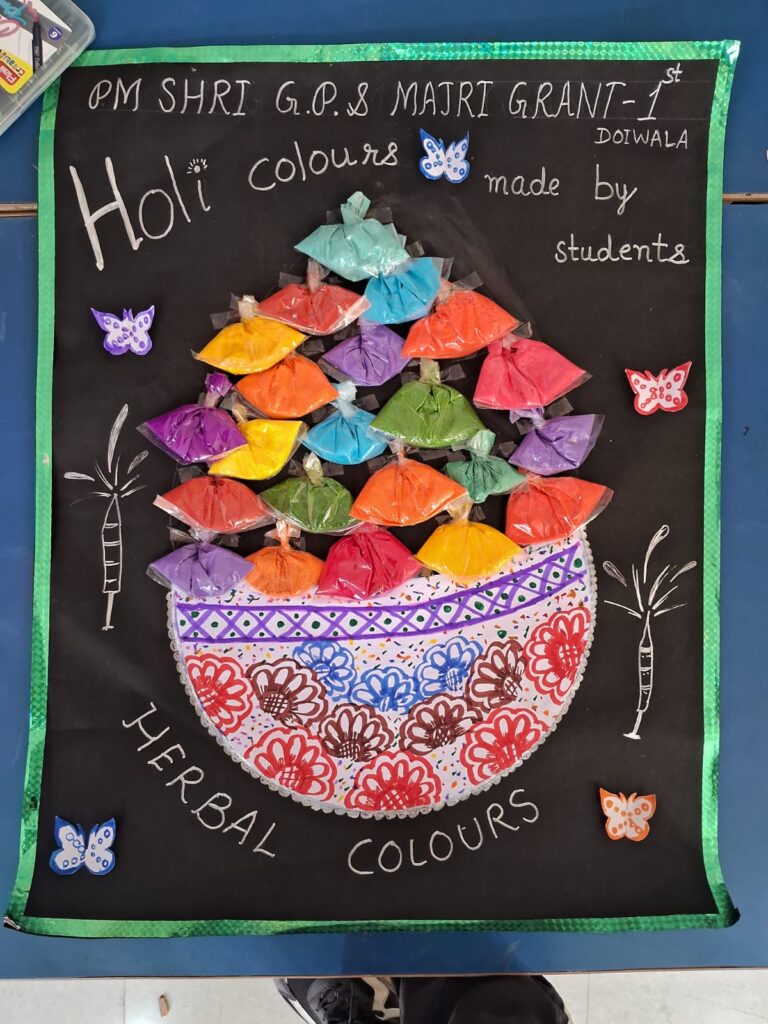 PM SHRI G.P.S MAJRI GRANT-1st
DOIWALA
Holi colours made by
students
HERBAL COLOURS